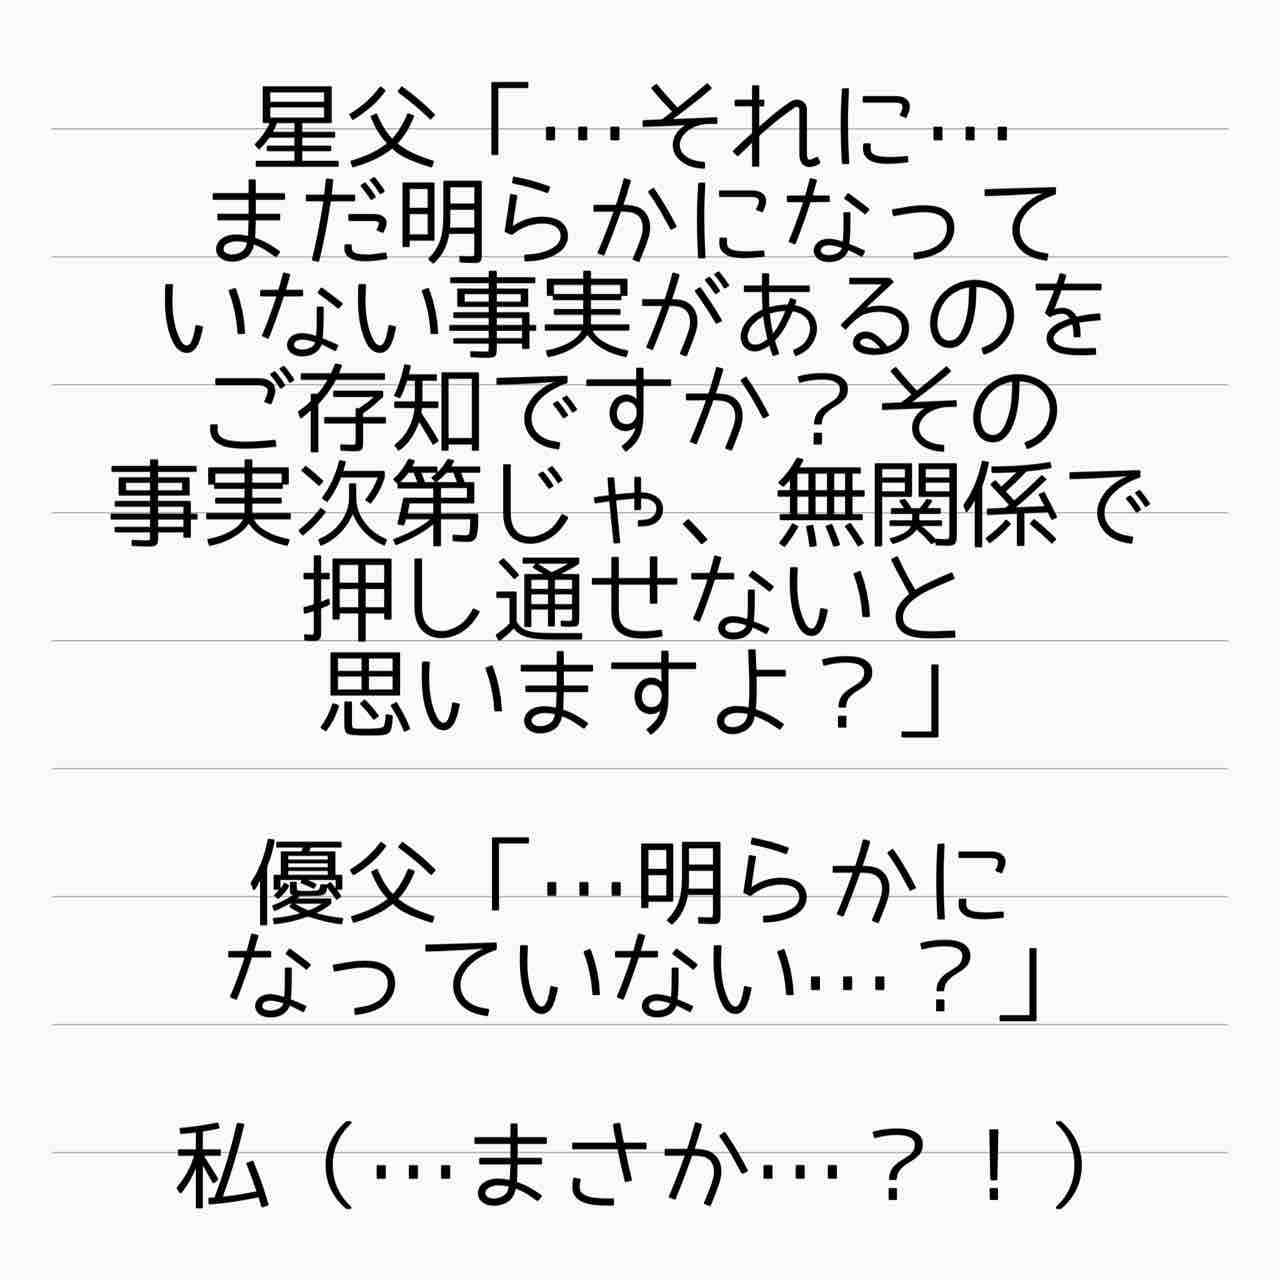 星父「…それに…
まだ明らかになって
いない事実があるのを
ご存知ですか？その
事実次第じゃ、無関係で
押し通せないと
思いますよ？」
優父「…明らかに
なっていない…？」
私（…まさか…？！）